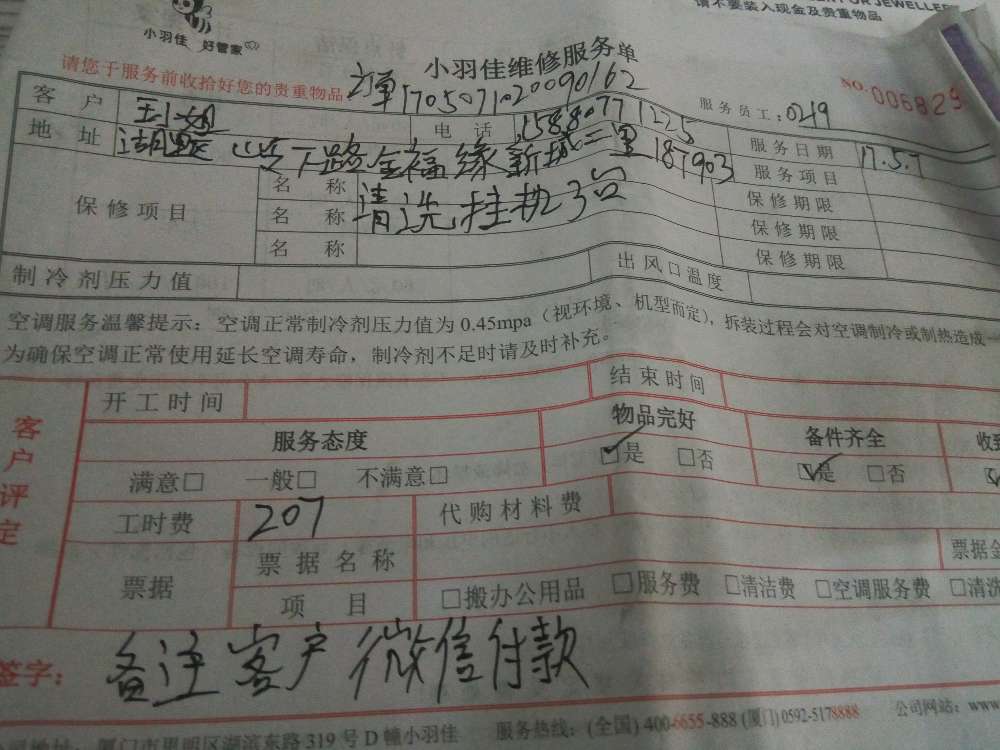 OR JEWELLE
请不要装入现金及贵重物品
小羽佳 好管家
小羽佳维修服务单
请您于服务前收拾好您的贵重物品
订单1705071020090162
服务员工：0219
NO.006829
客户
电话 15880771225
服务日期 17.5.7
地址 湖里 下路金福缘新城二里187903
服务项目
保修项目
名称 清洗挂机3台
保修期限
名称
保修期限
名称
保修期限
制冷剂压力值
出风口温度
空调服务温馨提示：空调正常制冷剂压力值为0.45mpa（视环境、机型而定），拆装过程会对空调制冷或制热造成一
为确保空调正常使用延长空调寿命，制冷剂不足时请及时补充。
客户评定
开工时间
结束时间
服务态度
物品完好
备件齐全
收到
满意□ 一般□ 不满意□
☑是 □否
☑是 □否
工时费 207
代购材料费
票据
票据名称
票据金
项目
□搬办公用品 □服务费 □清洁费 □空调服务费 □清洗
签字：
备注客户微信付款
司地址：厦门市思明区湖滨东路319号D幢小羽佳
服务热线：(全国)400-6655-888(厦门)0592-5178888
公司网站：www